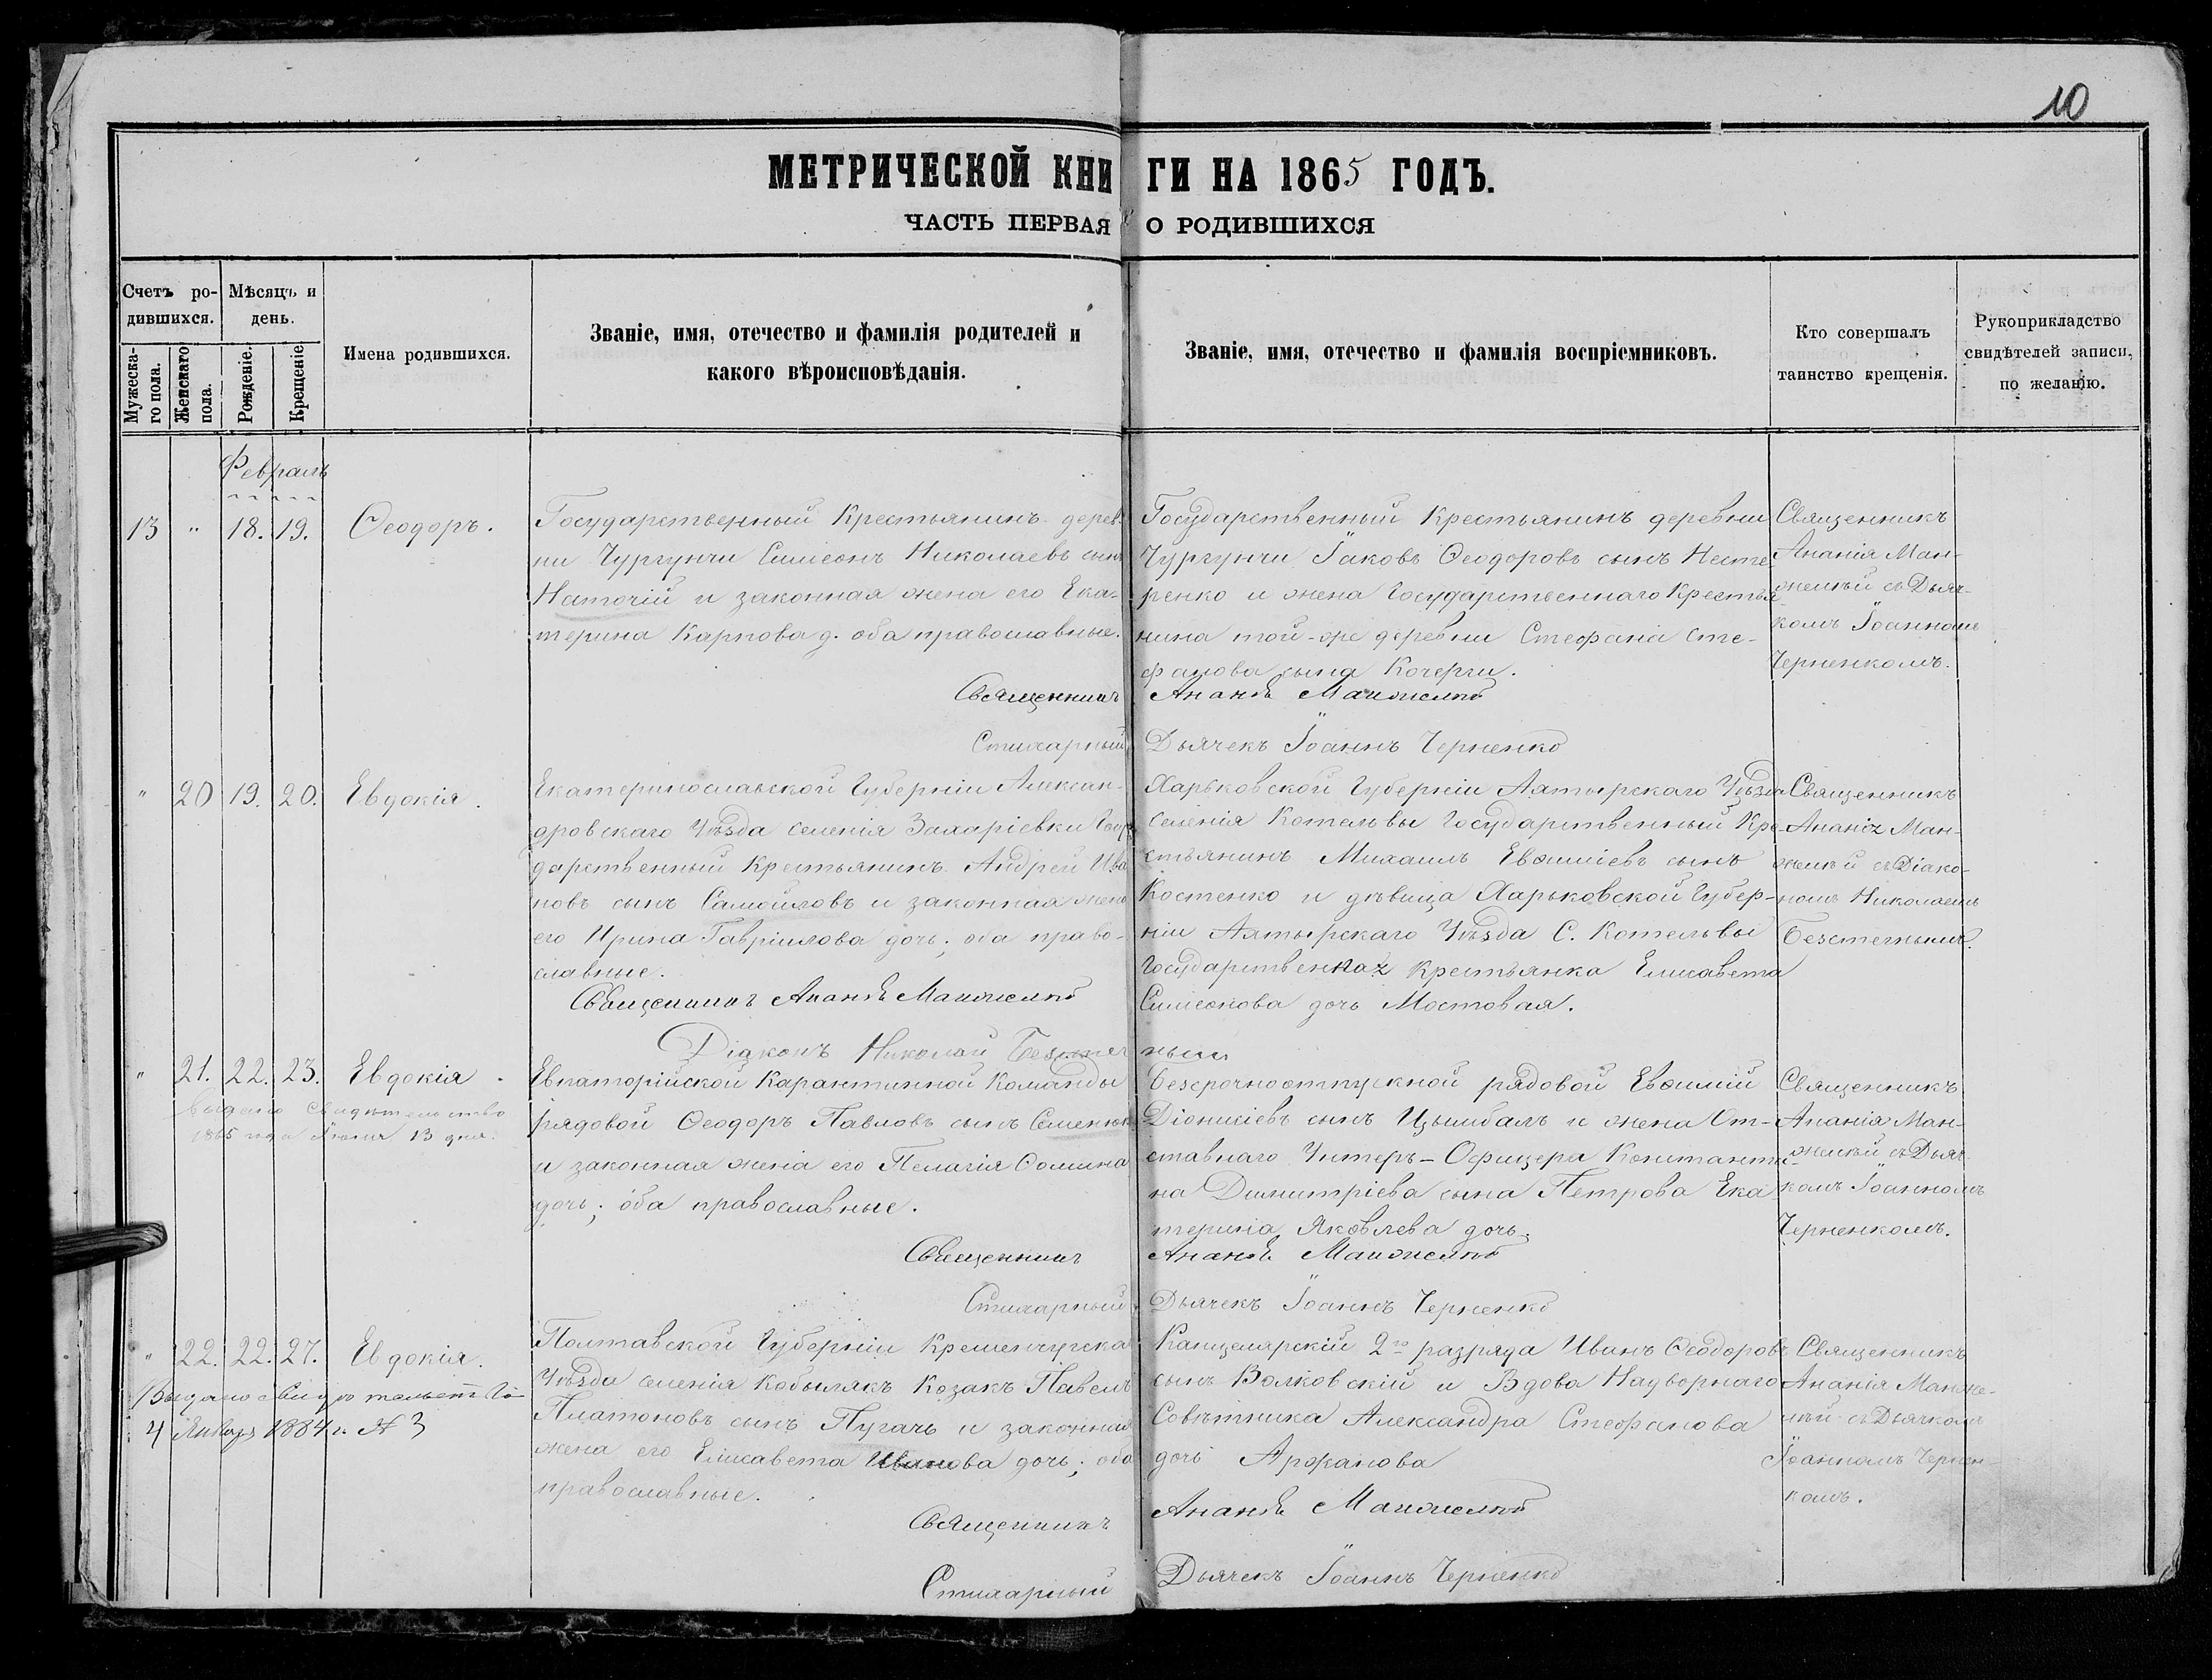 10
МЕТРИЧЕСКОЙ КНИГИ НА 1865 ГОДЪ.
ЧАСТЬ ПЕРВАЯ О РОДИВШИХСЯ
Счетъ ро-
дившихся.
Мужеска-
го пола.
Женскаго
пола.
Мѣсяцъ и
день.
Рожденіе.
Крещеніе.
Имена родившихся.
Званіе, имя, отечество и фамилія родителей и
какого вѣроисповѣданія.
Званіе, имя, отечество и фамилія воспріемниковъ.
Кто совершалъ
таинство крещенія.
Рукоприкладство
свидѣтелей записи,
по желанію.
Февраль
13 " 18. 19. Ѳеодоръ.
Государственный Крестьянинъ дерев-
ни Чургунчи Симеонъ Николаевъ сынъ
и законная жена его Ека-
терина Карпова д. оба православные.
Государственный Крестьянинъ деревни
Чургунчи Іаковъ Ѳеодоровъ сынъ Несте-
ренко и жена Государственнаго Крестья-
нина той-же деревни Стефаніа Сте-
фанова сына Кочерги.
Священникъ
Ананія Ман-
желѣй съ Дьяч-
комъ Іоанномъ
Черненкомъ.
Священникъ Ананія Манжелѣй
Стихарный Дьячекъ Іоаннъ Черненко
" 20 19. 20. Евдокія.
Екатеринославской Губерніи Алексан-
дровскаго Уѣзда селенія Захаріевки Госу-
дарственный Крестьянинъ Андрей Ива-
новъ сынъ Самойловъ и законная жена
его Ирина Гавріилова дочь; оба право-
славные.
Харьковской Губерніи Ахтырскаго Уѣзда
селенія Котельвы Государственный Кре-
стьянинъ Михаилъ Евѳиміевъ сынъ
Костенко и дѣвица Харьковской Губер-
ніи Ахтырскаго Уѣзда С. Котельвы
Государственная крестьянка Елисавета
Симеонова дочь Мостовая.
Священникъ
Ананія Ман-
желѣй съ Діако-
номъ Николаемъ
Священникъ Ананія Манжелѣй
Діаконъ Николай
" 21. 22. 23. Евдокія.
выдано свидѣтельство
1865 года Іюня 13 дня.
Евпаторійской Карантинной Команды
рядовой Ѳеодоръ Павловъ сынъ Семенюкъ
и законная жена его Пелагія Ѳомина
дочь; оба православные.
безсрочноотпускной рядовой Евѳимій
Діонисіевъ сынъ Цымбалъ и жена От-
ставнаго Унтеръ-Офицера Константи-
на Димитріева сына Петрова Ека-
терина Яковлева дочь.
Священникъ
Ананія Ман-
желѣй съ Дьяч-
комъ Іоанномъ
Черненкомъ.
Священникъ Ананія Манжелѣй
Стихарный Дьячекъ Іоаннъ Черненко
" 22. 22. 27. Евдокія.
Выдано свидѣтельство
4 Января 1884 г. № 3
Полтавской Губерніи Кременчугска
Уѣзда селенія Кобылякъ Козакъ Павелъ
Платоновъ сынъ Пугачъ и законная
жена его Елисавета Иванова дочь; оба
православные.
Канцелярскій 2го разряда Иванъ Ѳеодоровъ
сынъ Волковскій и Вдова Надворнаго
Совѣтника Александра Стефанова
дочь Аржанова
Священникъ
Ананія Манже-
лѣй съ Дьячкомъ
Іоанномъ Чернен-
комъ.
Священникъ Ананія Манжелѣй
Стихарный Дьячекъ Іоаннъ Черненко